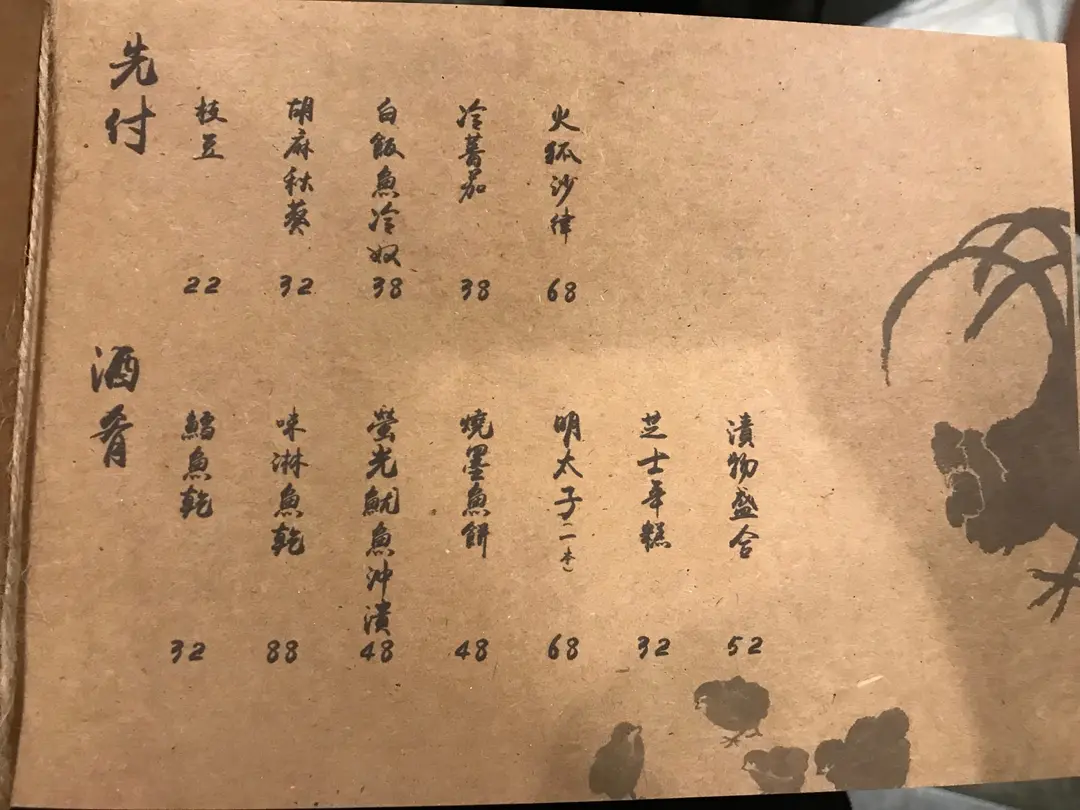 先付
枝豆
22
胡麻秋葵
32
白飯魚冷奴
38
冷蕃茄
38
火狐沙律
68
酒肴
鱈魚乾
32
味淋魚乾
88
螢光魷魚沖漬
48
燒墨魚餅
48
明太子(二本)
68
芝士年糕
32
漬物盛合
52